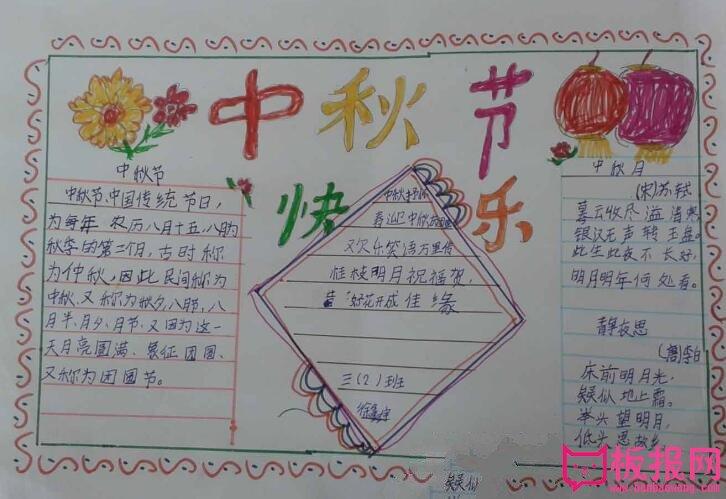 中秋节
快乐
中秋节
中秋节、中国传统节日,
为每年 农历八月十五、八月为
秋季的第二个月,古时称
为仲秋,因此民间称为
中秋、又称为秋夕、八月节,八
月半、月夕、月节、又因为这一
天月亮圆满、象征团圆、
又称为团圆节。
中秋
中秋
又欢乐笑语万里传
桂枝明月祝福贺,
好花开成佳缘
三(2)班
中秋月
(宋)苏轼
暮云收尽溢清寒
银汉无声转玉盘。
此生此夜不长好,
明月明年何处看。
静夜思
(唐)李白
床前明月光,
疑似地上霜。
举头望明月,
低头思故乡
疑似
板报网
www.banbaowang.com